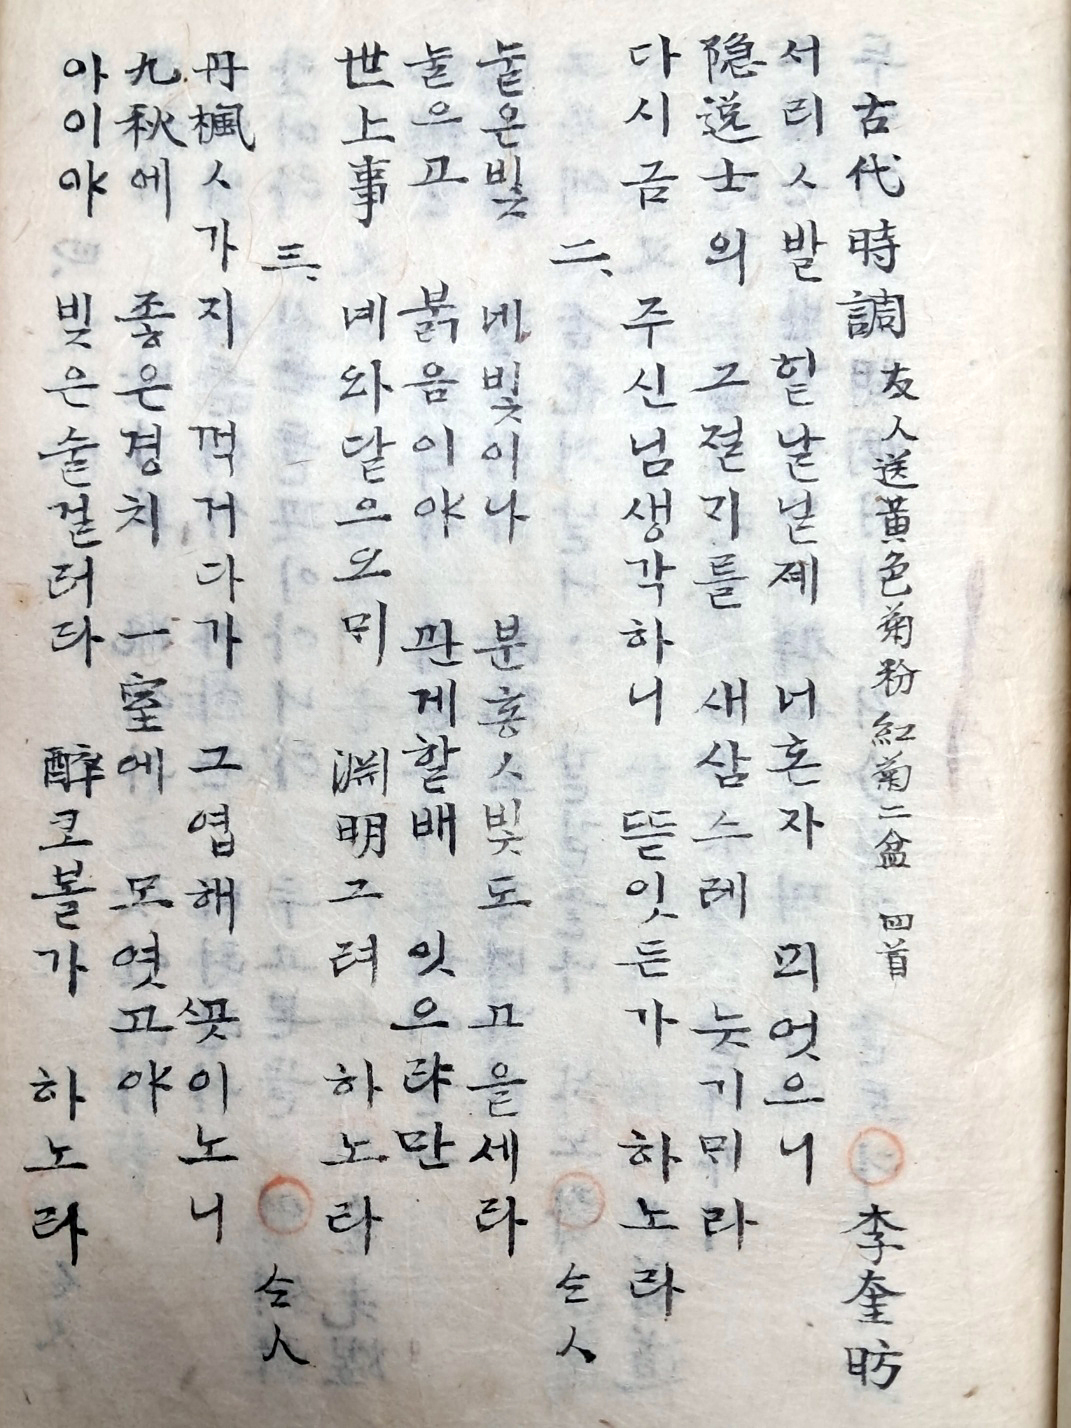 古代時調 友人送黃色菊粉紅菊二盆 四首 李奎昉
서리ㅅ발 헡날닌졔 너혼자 픠엿으니
隐逸士의 그졀기를 새삼스레 늣기믜라
다시금 주신님생각하니 뜯잇든가 하노라
二、 仝人
눌은빗 네빗이나 분홍ㅅ빗도 고을세라
눌으고 붉음이야 관게할배 잇으랴만
世上事 녜와달으오믜 淵明그려 하노라
三、 仝人
丹楓ㅅ가지 꺽거다가 그엽해 ᄭᅩᆺ이노니
九秋에 죻은경치 一室에 모엿고야
아이야 빗은술걸러라 醉코볼가 하노라